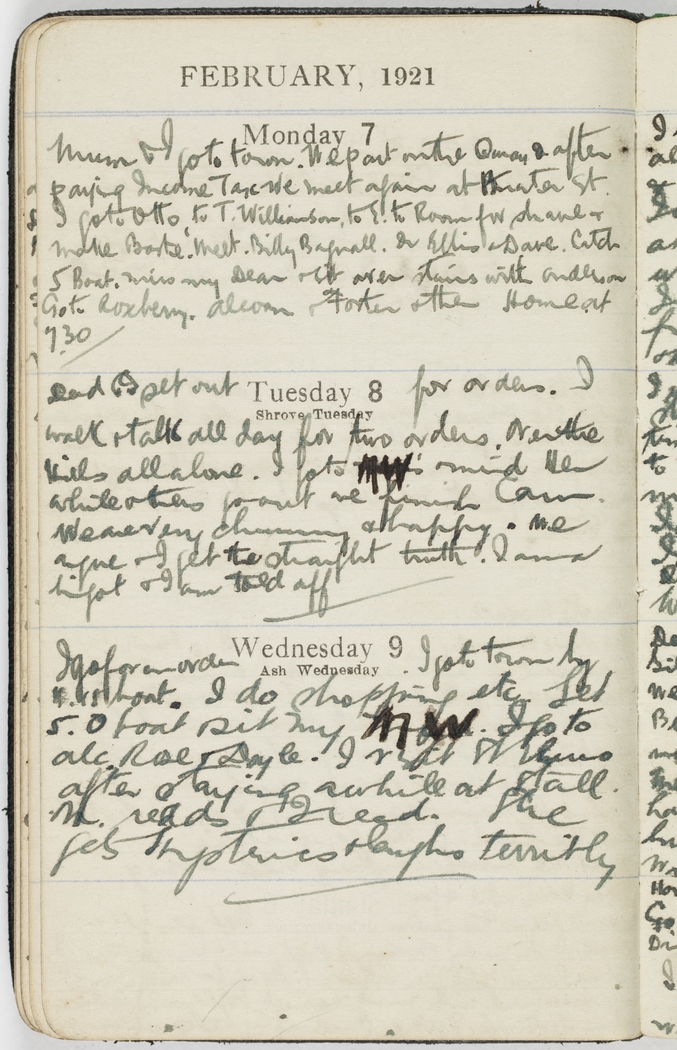 FEBRUARY, 1921
Monday 7
Mum & I go to town. We part on the Quay & after
paying Income Tax we meet again at Hunter St.
I go to Otto, to T. Williamson, to E. to Room for shave &
make Booke. Meet. Billy Bagnall. Dr Ellis & Dave. Catch
5 Boat. miss my Dear & sit over stairs with Anderson
Go to Roxberry. alcorn & Foster & then Home at
7.30
Tuesday 8
Shrove Tuesday
and I set out for orders. I
walk & talk all day for two orders. Over the
hills all alone. I go to MW's & mind Her
while others go out we finish Cam.
We are very chummy & happy. We
argue & I get the straight truth. I am a
bigot & I am told off
Wednesday 9
Ash Wednesday
I go for an order I go to town by
11.15 boat. I do shopping etc. Get
5.0 boat & sit my MW. I go to
alc. Rose & Doyle. I visit St Elmo
after staying awhile at Stall.
M. reads & I read. She
gets hysterics & laughs terribly